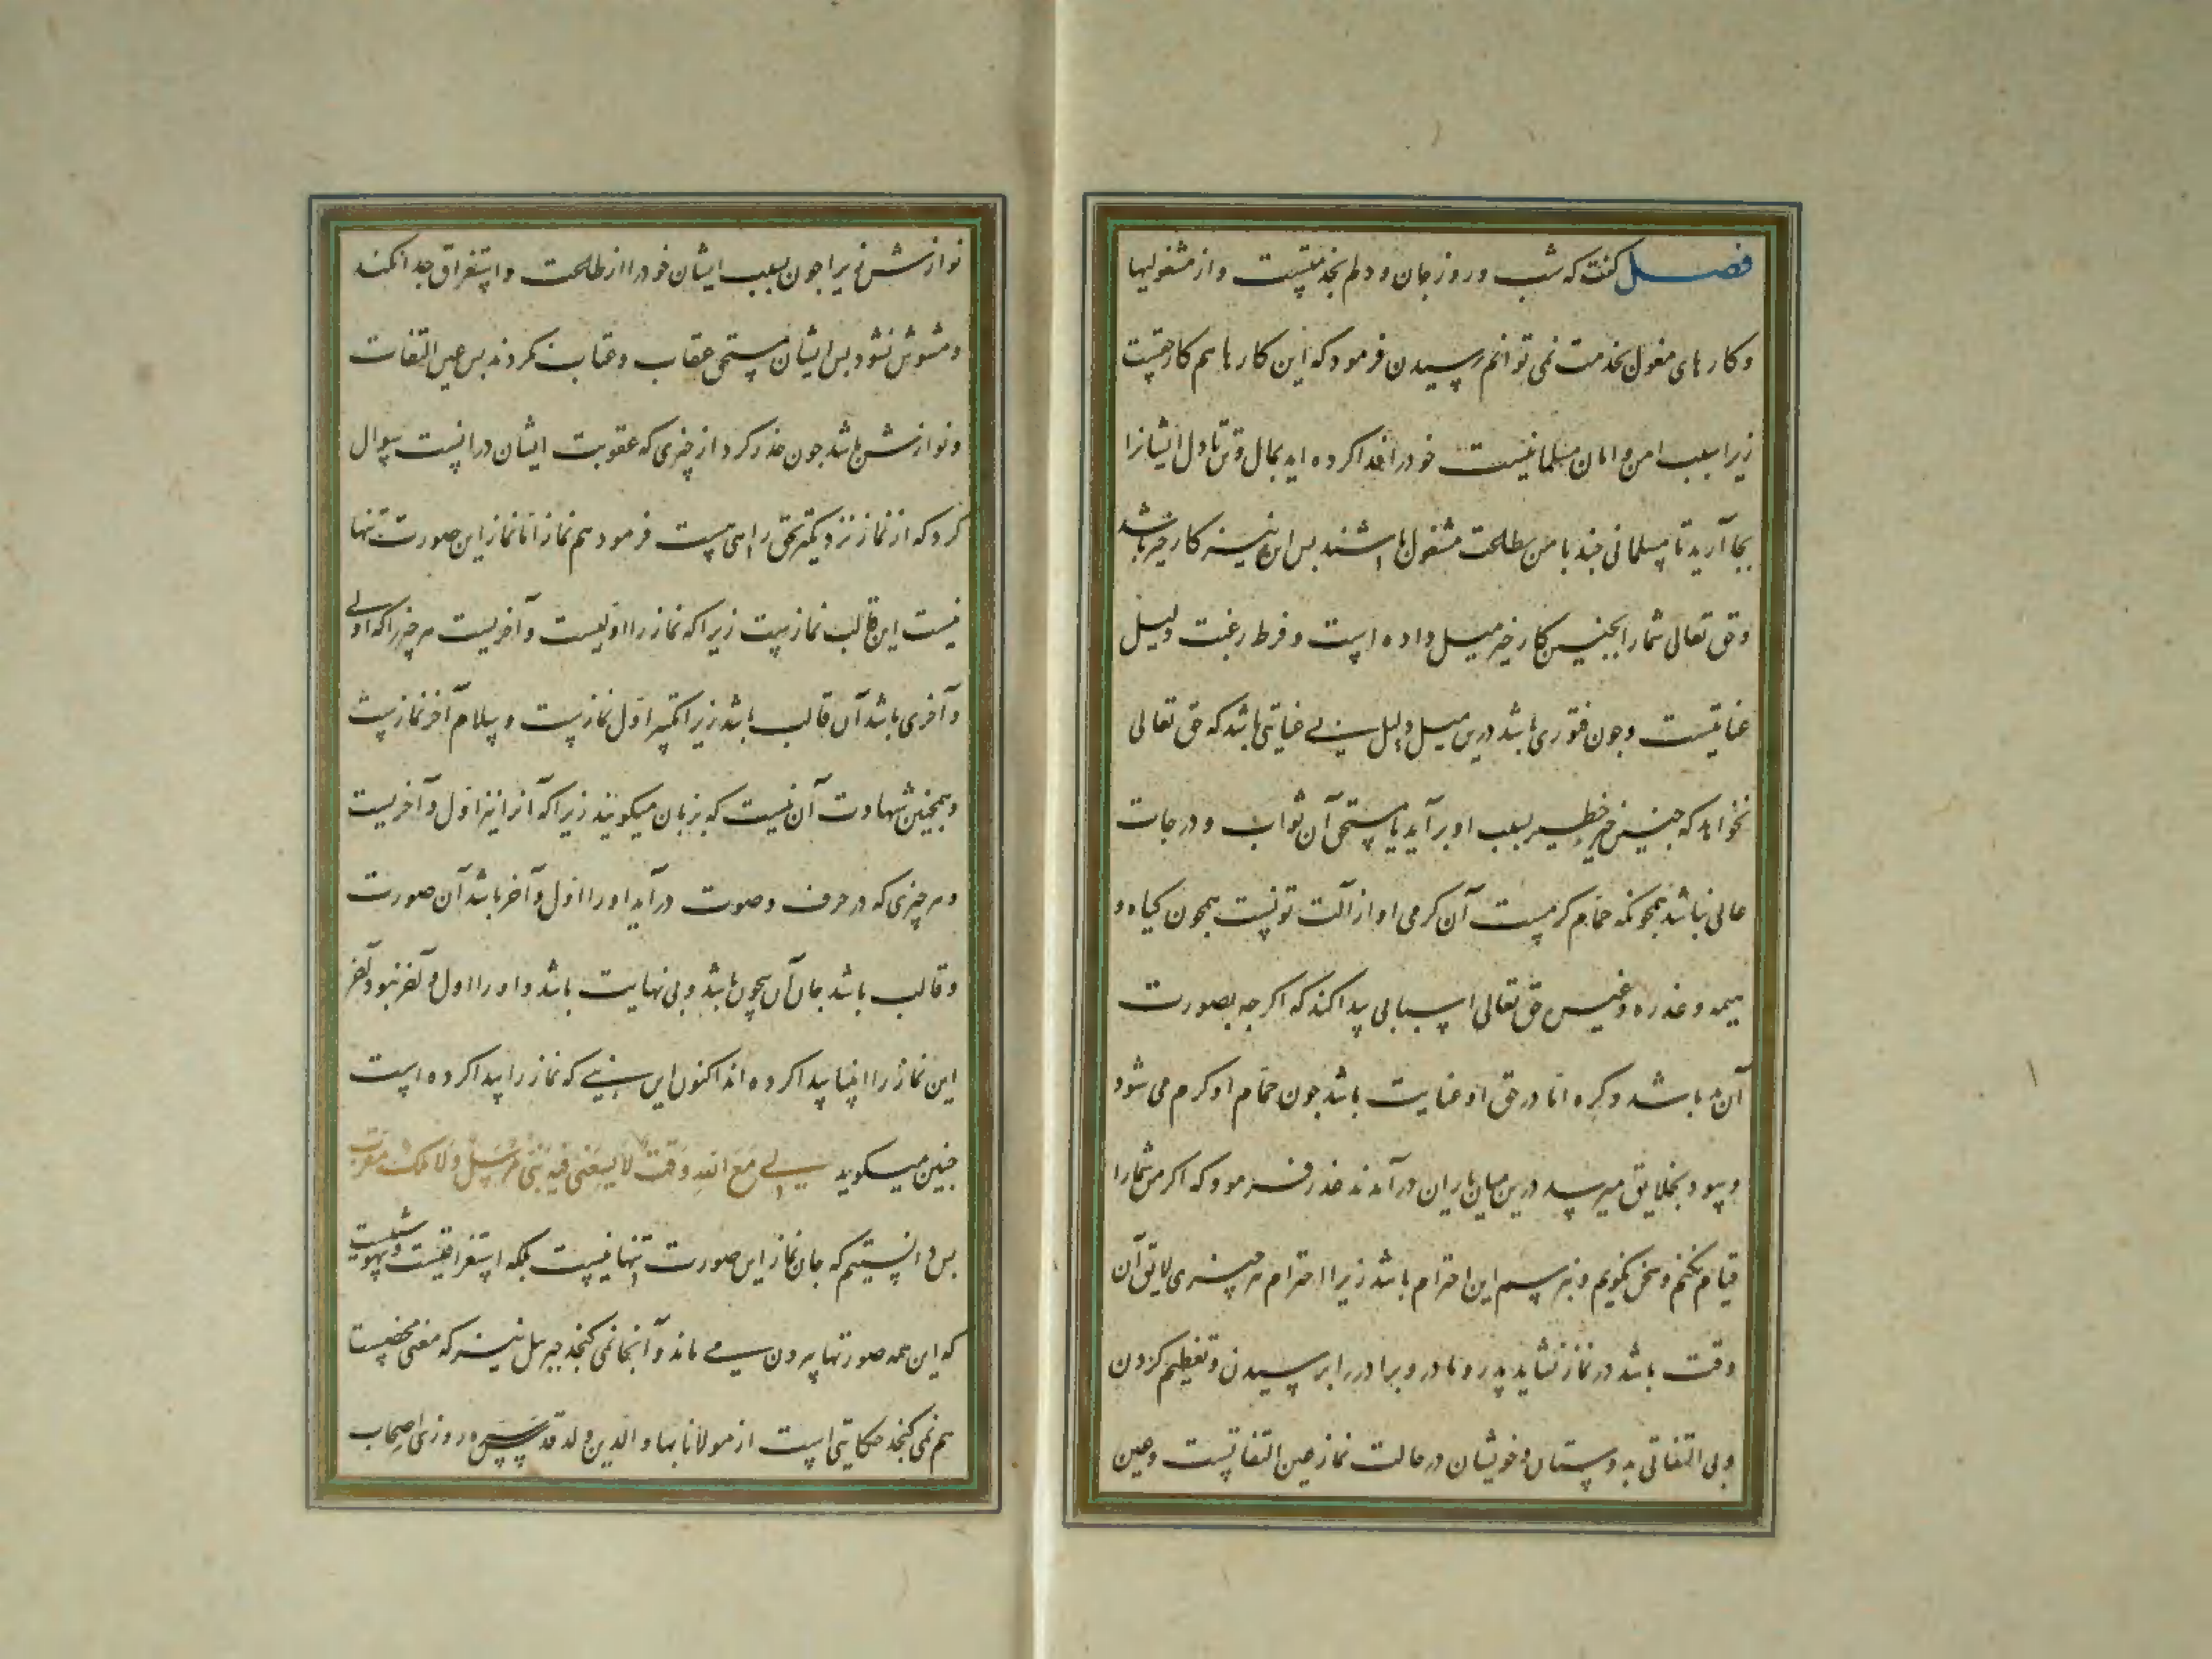 فصل کفت که شب و روز جان و دلم بخدمتست و از مشغولیها
و کارهای مغول بخدمت نمی توانم رسیدن فرمود که این کارها هم کار حقست
زیرا سبب امن و امان مسلمانیست خود را فدا کرده اید بمال و تن تا دل ایشانرا
بجا آرید تا مسلمانی چند با من بطاعت مشغول باشند بس این نیز کار خیر باشد
و حق تعالی شما را بجنین کار خیر میل داده است و فرط رغبت دلیل
عنایتست و جون فتوری باشد درین میل دلیل بی عنایتی باشد که حق تعالی
نخواهد که جنین خیر خطیر بسبب او بر آید تا مستحق آن ثواب و درجات
عالی نباشد همچونکه حمام کرمست آن کرمی او از آلت تونست همچون کیاه و
هیمه و عذره و غیره حق تعالی اسبابی پیدا کند که اکر چه بصورت
آن بد باشد و کره اما در حق او عنایت باشد جون حمام او کرم می شود
و سود بخلایق میرسد درین میان یاران در آمدند عذر فرمود که اکر من شما را
قیام نکنم و سخن نکویم و نپرسم این احترام باشد زیرا احترام هر چیزی لایق آن
وقت باشد در نماز نشاید پدر و مادر و برادر را پرسیدن و تعظیم کردن
و بی التفاتی بدوستان و خویشان در حالت نماز عین التفاتست و عین
نوازش زیرا جون بسبب ایشان خود را از طاعت و استغراق جدا نکند
و مشوش نشود بس ایشان مستحق عقاب و عتاب نکردند بس عین التفات
و نوازش باشد جون حذر کرد از چیزی که عقوبت ایشان در آنست سوال
کرد که از نماز نزدیکتر بحق راهی هست فرمود هم نماز اما نماز این صورت تنها
نیست این قالب نمازست زیرا که نماز را اولیست و آخریست هر چیز را که اولی
و آخری باشد آن قالب باشد زیرا تکبیر اول نمازست و سلام آخر نمازست
و همچنین شهادت آن نیست که بر زبان میکویند زیرا که آنرا نیز اول و آخریست
و هر چیزی که در حرف و صوت در آید او را اول و آخر باشد آن صورت
و قالب باشد جان آن بیچون باشد و بی نهایت باشد و او را اول و آخر نبود آخر
این نماز را انبیا پیدا کرده اند اکنون این نبی که نماز را پیدا کرده است
جنین میکوید لی مع الله وقت لا یسعنی فیه نبی مرسل ولا ملک مقرب
بس دانستیم که جان نماز این صورت تنها نیست بلکه استغراقیست و بیهوشیست
که این همه صورتها برون می ماند و آنجا نمی کنجد جبریل نیز که معنی محضست
هم نمی کنجد حکایتی است از مولانا بهاء الدین ولد قدس سره روزی اصحاب